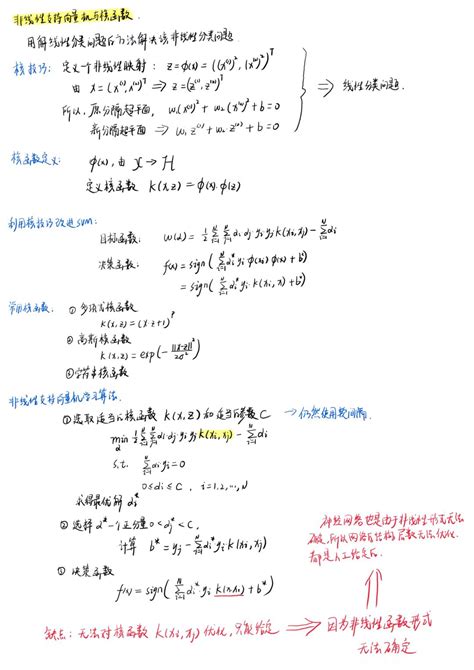 非线性支持向量机与核函数.
用解线性分类问题的方法解决该非线性分类问题
核技巧: 定义一个非线性映射: z=φ(x)=((x⁽¹⁾)², (x⁽²⁾)²)ᵀ
由 x=(x⁽¹⁾, x⁽²⁾)ᵀ ⇒ z=(z⁽¹⁾, z⁽²⁾)ᵀ
⇒ 线性分类问题.
所以, 原分隔超平面, w₁(x⁽¹⁾)²+w₂(x⁽²⁾)²+b=0
新分隔超平面 ⇒ w₁z⁽¹⁾+w₂z⁽²⁾+b=0
核函数定义: φ(x), 由 X→H
定义核函数 K(x,z)=φ(x)·φ(z)
利用核技巧改进SVM:
目标函数: W(α)=½ Σᵢ₌₁ᴺ Σⱼ₌₁ᴺ αᵢαⱼyᵢyⱼK(xᵢ,xⱼ)-Σᵢ₌₁ᴺαᵢ
决策函数: f(x)=sign(Σᵢ₌₁ᴺαᵢ*yᵢφ(xᵢ)φ(x)+b*)
=sign(Σᵢ₌₁ᴺαᵢ*yᵢ·K(xᵢ,x)+b*)
常用核函数: ① 多项式核函数
K(x,z)=(x·z+1)ᵖ
② 高斯核函数
K(x,z)=exp(-||x-z||²/2σ²)
③ 字符串核函数
非线性支持向量机学习算法.
① 选取适当的核函数 K(x,z) 和适当的参数C → 仍然使用软间隔.
min α ½ Σᵢ₌₁ᴺ Σⱼ₌₁ᴺ αᵢαⱼyᵢyⱼK(xᵢ,xⱼ)-Σᵢ₌₁ᴺαᵢ
s.t. Σᵢ₌₁ᴺαᵢyᵢ=0
0≤αᵢ≤C, i=1,2,…,N
求得最优解 αᵢ*
② 选择 α* 一个正分量 0<αⱼ*<C.
计算 b*=yⱼ-Σᵢ₌₁ᴺαᵢ*yᵢK(xᵢ,xⱼ)
③ 决策函数
f(x)=sign(Σᵢ₌₁ᴺαᵢ*yᵢK(x,xᵢ)+b*)
神经网络也是由于非线性形式无法
确定, 所以网络的结构层数无法优化.
都是人工给定的.
缺点: 无法对核函数 K(xᵢ,xⱼ) 优化, 只能给定 ⇒ 因为非线性函数形式
无法确定